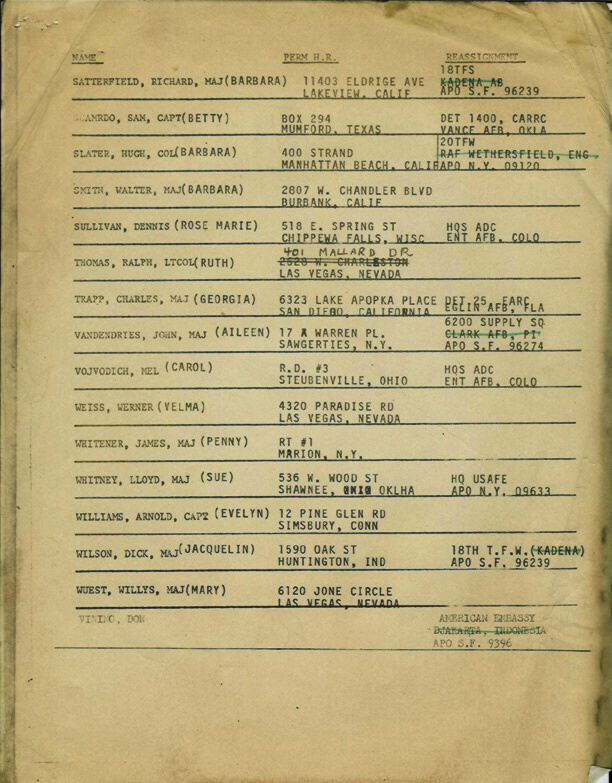 NAME PERM H.R. REASSIGNMENT
18TFS
SATTERFIELD, RICHARD, MAJ (BARBARA) 11403 ELDRIGE AVE KADENA AB
LAKEVIEW, CALIF APO S.F. 96239
SAM, CAPT (BETTY) BOX 294 DET 1400, CARRC
MUMFORD, TEXAS VANCE AFB, OKLA
20TFW
SLATER, HUGH, COL (BARBARA) 400 STRAND RAF WETHERSFIELD, ENG.
MANHATTAN BEACH, CALIF APO N.Y. 09120
SMITH, WALTER, MAJ (BARBARA) 2807 W. CHANDLER BLVD
BURBANK, CALIF
SULLIVAN, DENNIS (ROSE MARIE) 518 E. SPRING ST HQS ADC
CHIPPEWA FALLS, WISC ENT AFB, COLO
401 MALLARD DR
THOMAS, RALPH, LTCOL (RUTH) 2528 W. CHARLESTON
LAS VEGAS, NEVADA
TRAPP, CHARLES, MAJ (GEORGIA) 6323 LAKE APOPKA PLACE DET 25, EARC
SAN DIEGO, CALIFORNIA EGLIN AFB, FLA
6200 SUPPLY SQ
VANDENDRIES, JOHN, MAJ (AILEEN) 17 A WARREN PL. CLARK AFB, PI
SAWGERTIES, N.Y. APO S.F. 96274
VOJVODICH, MEL (CAROL) R.D. #3 HQS ADC
STEUBENVILLE, OHIO ENT AFB, COLO
WEISS, WERNER (VELMA) 4320 PARADISE RD
LAS VEGAS, NEVADA
WHITENER, JAMES, MAJ (PENNY) RT #1
MARION, N.Y.
WHITNEY, LLOYD, MAJ (SUE) 536 W. WOOD ST HQ USAFE
SHAWNEE, OHIO OKLHA APO N.Y. 09633
WILLIAMS, ARNOLD, CAPT (EVELYN) 12 PINE GLEN RD
SIMSBURY, CONN
WILSON, DICK, MAJ (JACQUELIN) 1590 OAK ST 18TH T.F.W. (KADENA)
HUNTINGTON, IND APO S.F. 96239
WUEST, WILLYS, MAJ (MARY) 6120 JONE CIRCLE
LAS VEGAS, NEVADA
VINING, DON AMERICAN EMBASSY
DJAKARTA, INDONESIA
APO S.F. 9396